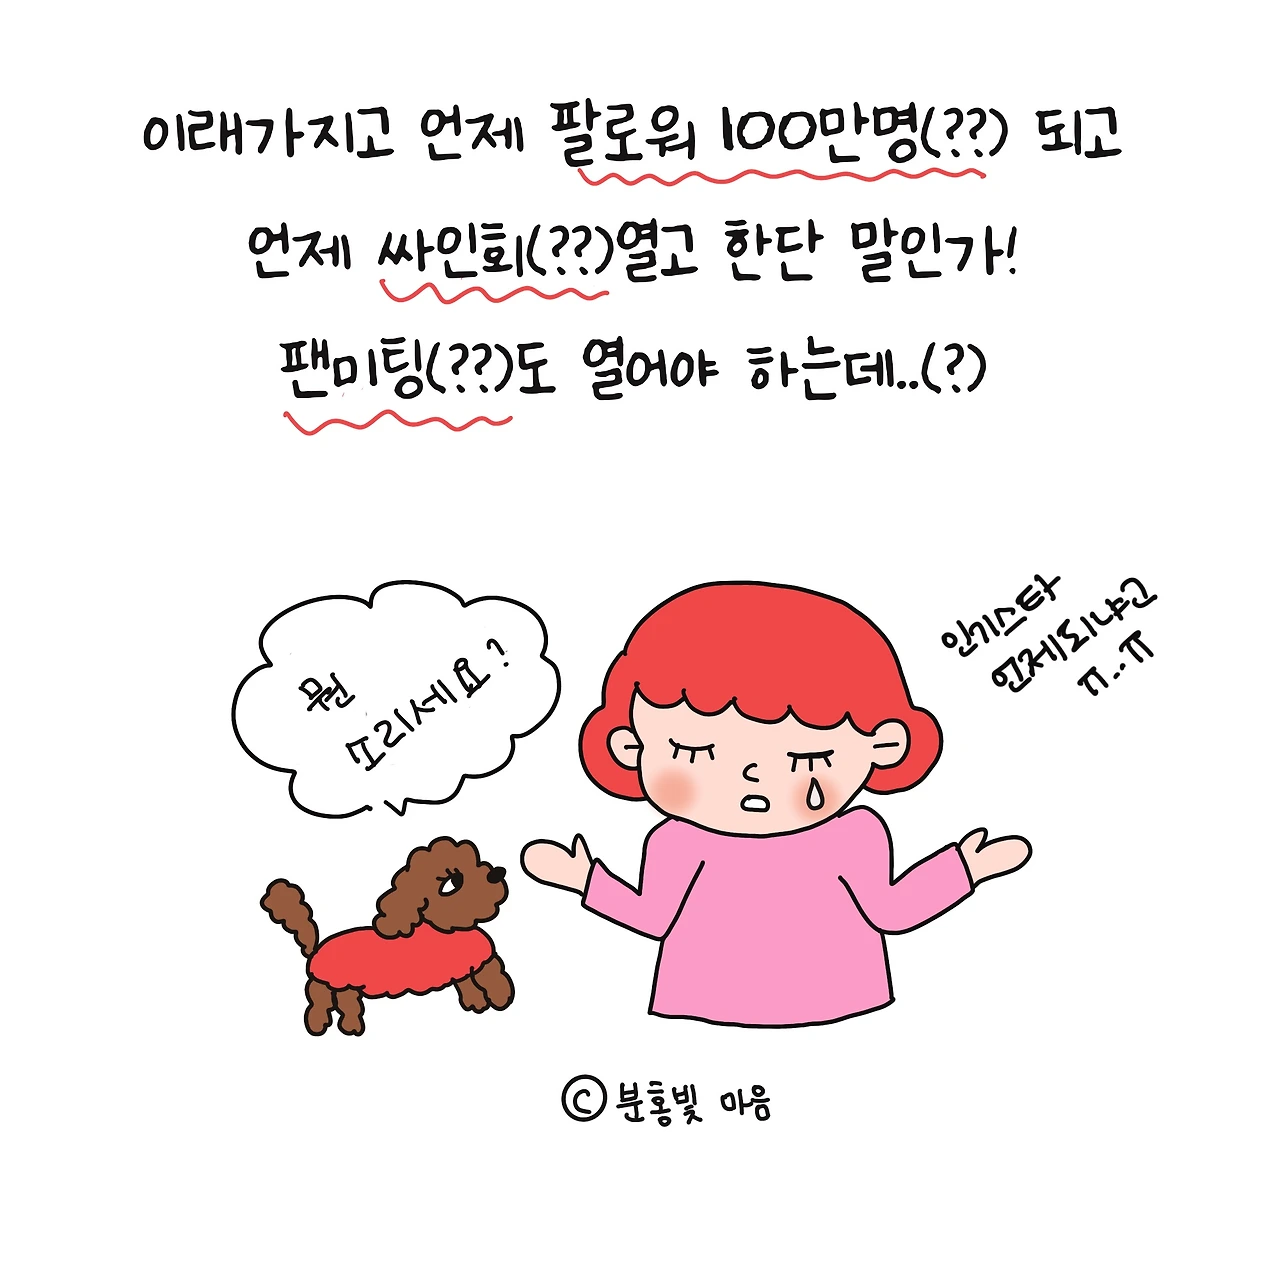 이래가지고 언제 팔로워 100만명(??) 되고
언제 싸인회(??)열고 한단 말인가!
팬미팅(??)도 열어야 하는데..(?)
뭔
또리세요?
인기스타
언제되냐고
ㅠ..ㅠ
© 분홍빛 마음